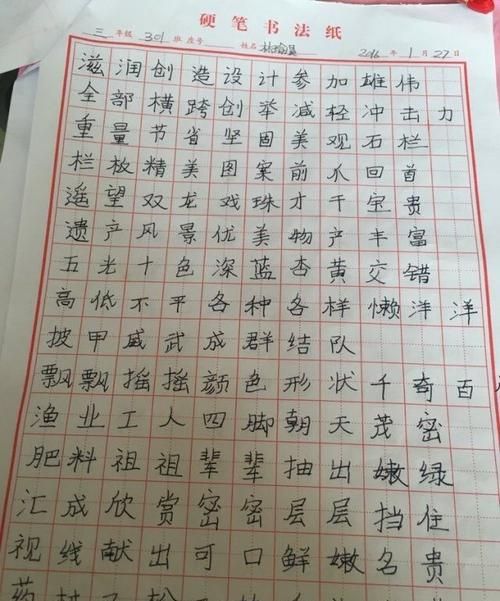 硬笔书法纸
三年级 301班 座号 姓名 2016年1月27日
滋润创造设计参加雄伟
全部横跨创举减轻冲击力
重量节省坚固美观石栏
栏板精美图案前爪回首
遥望双龙戏珠才干宝贵
遗产风景优美物产丰富
五光十色深蓝杏黄交错
高低不平各种各样懒洋洋
披甲威武成群结队
飘飘摇摇颜色形状千奇百
渔业工人四脚朝天茂密
肥料祖祖辈辈抽出嫩绿
汇成欣赏密密层层挡住
视线献出可口鲜嫩名贵
药